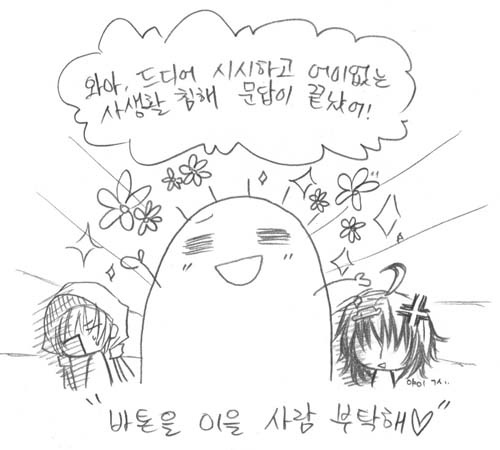 와아, 드디어 시시하고 어이없는
사생활 침해 문답이 끝났어!
야이
"바톤을 이을 사람 부탁해♡"